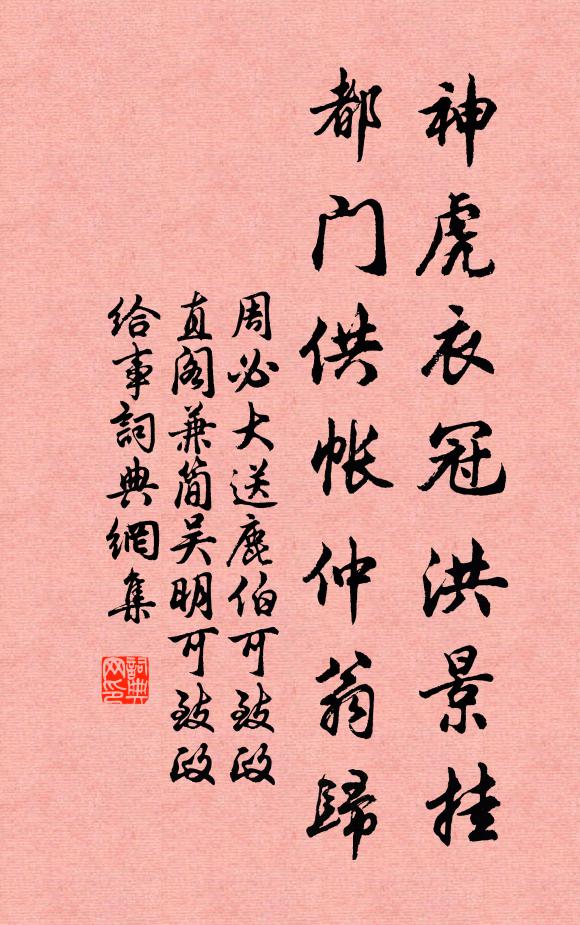 神虎衣冠洪景挂
都门供帐仲翁歸
周必大送鹿伯可致政
直阁兼简吴明可致政
给事詞典網集
詞典网印